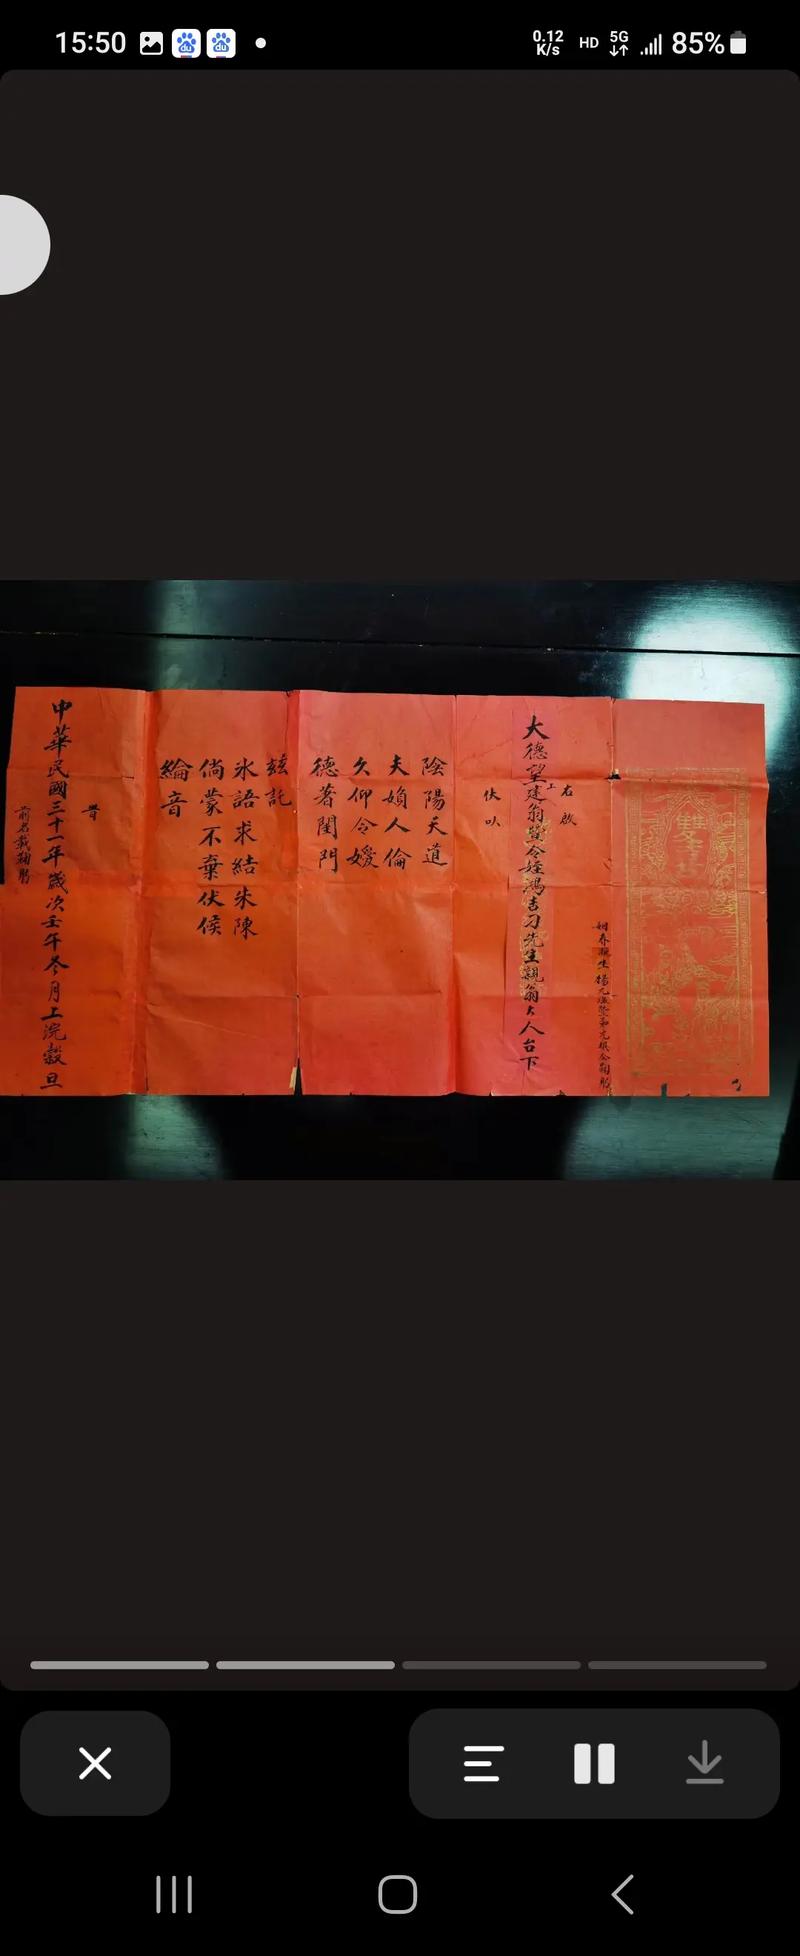 15:50
0.12 K/s HD 5G 85%
雙
右啟
大德望建翁暨令姪鴻吉刁先生親翁大人台下
伏以
陰陽天道
夫婦人倫
久仰令嬡
德著閨門
茲託
氷語求結朱陳
倘蒙不棄伏候
綸音
中華民國三十一年歲次壬午冬月上浣穀旦
前名載鞠躬